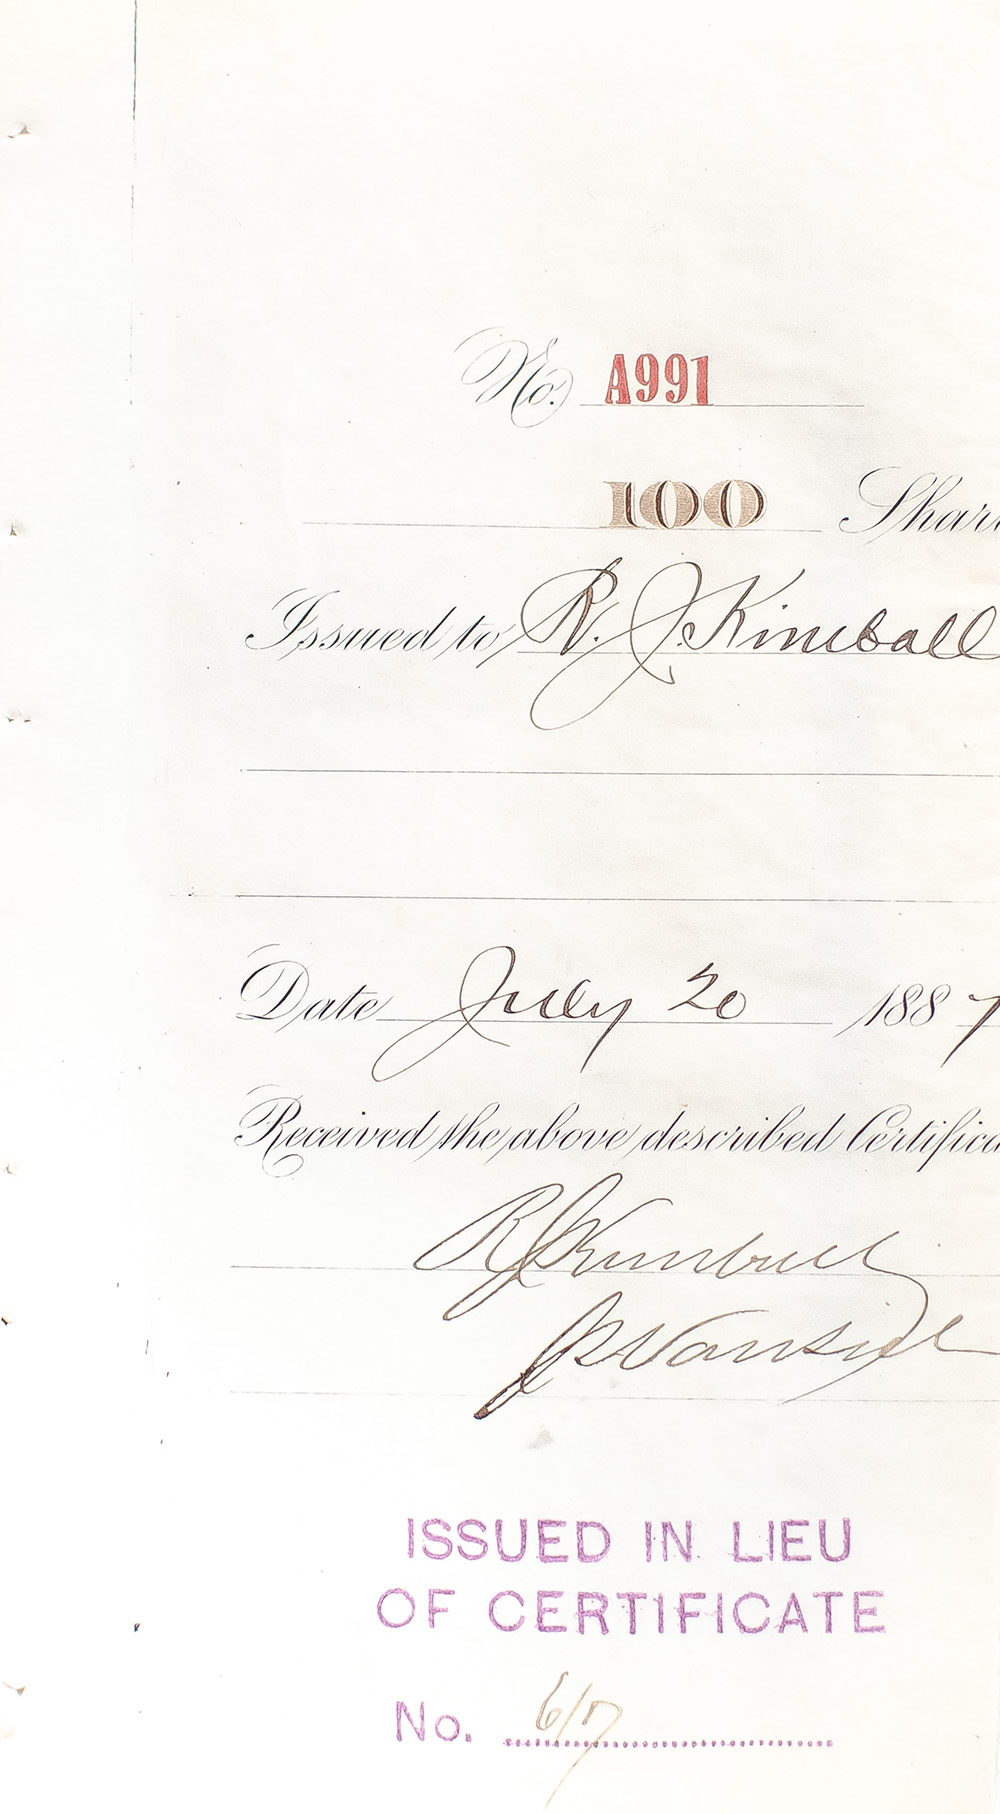 No. A991
100 Shar
Issued to R. J. Kimball
Date July 20 1887
Received the above described Certifica
R J Kimball
ISSUED IN LIEU
OF CERTIFICATE
No. 617